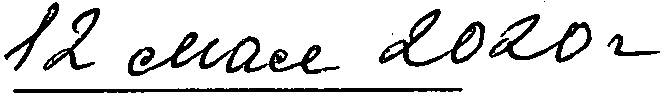 12 мая 2020г